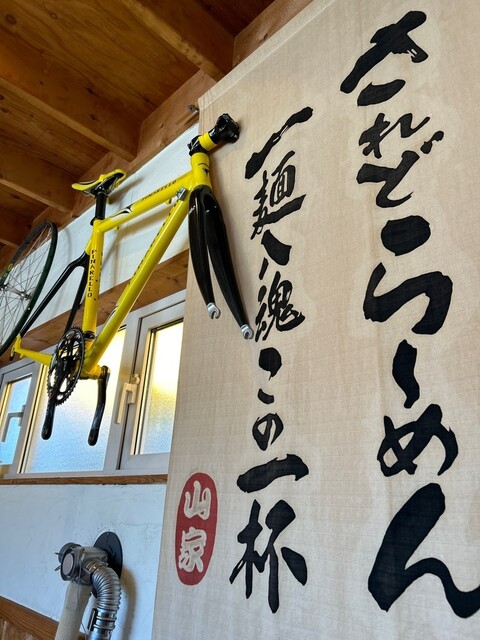 されどらーめん
一麺入魂この一杯
山家
PINARELLO